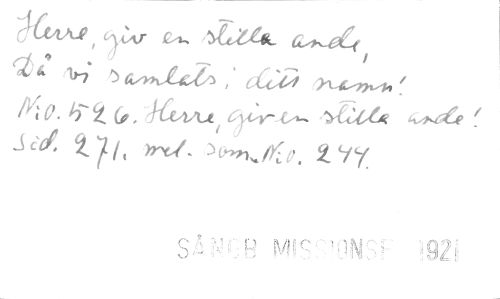 Herre, giv en stilla ande,
Då vi samlats i ditt namn!
N:o. 526. Herre, giv en stilla ande!
Sid. 271. mel. som N:o. 244.
SÅNGB MISSIONSF 1921